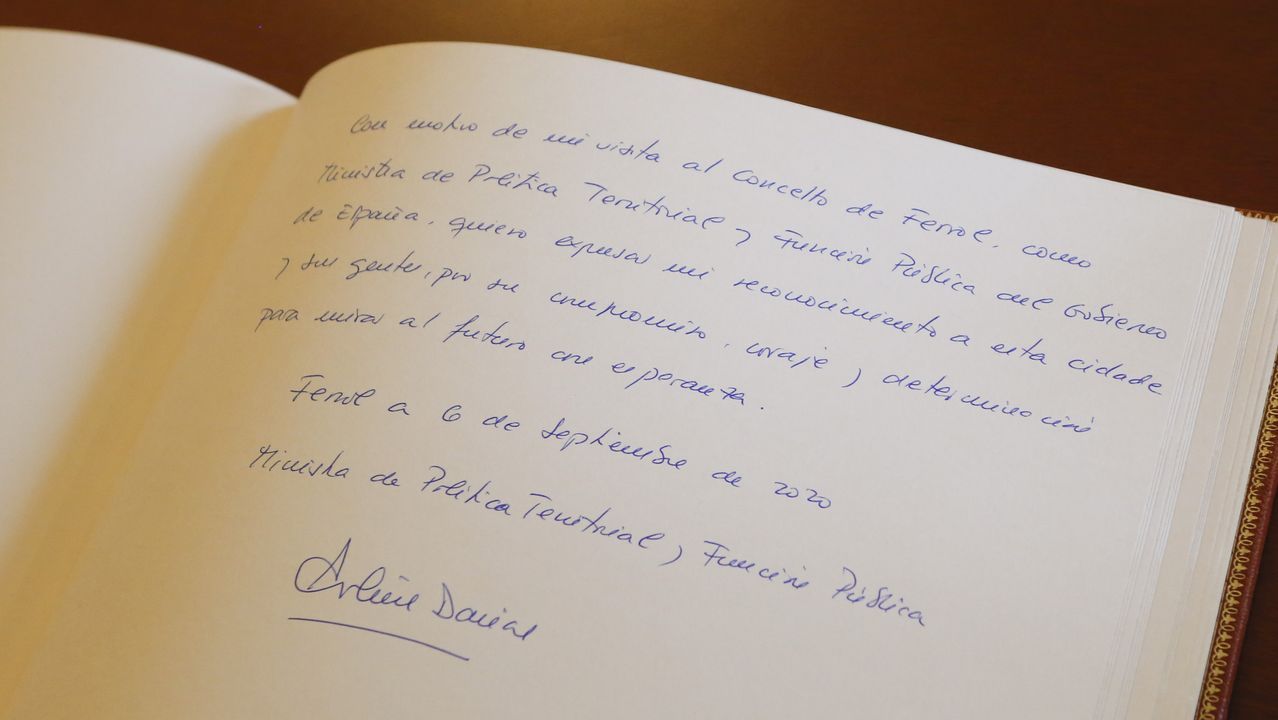 Con motivo de mi visita al Concello de Ferrol, como
Ministra de Política Territorial y Función Pública del Gobierno
de España, quiero expresar mi reconocimiento a esta cidade
y sus gentes, por su compromiso, coraje y determinación
para mirar al futuro con esperanza.
Ferrol a 6 de Septiembre de 2020
Ministra de Política Territorial y Función Pública
Carolina Darias